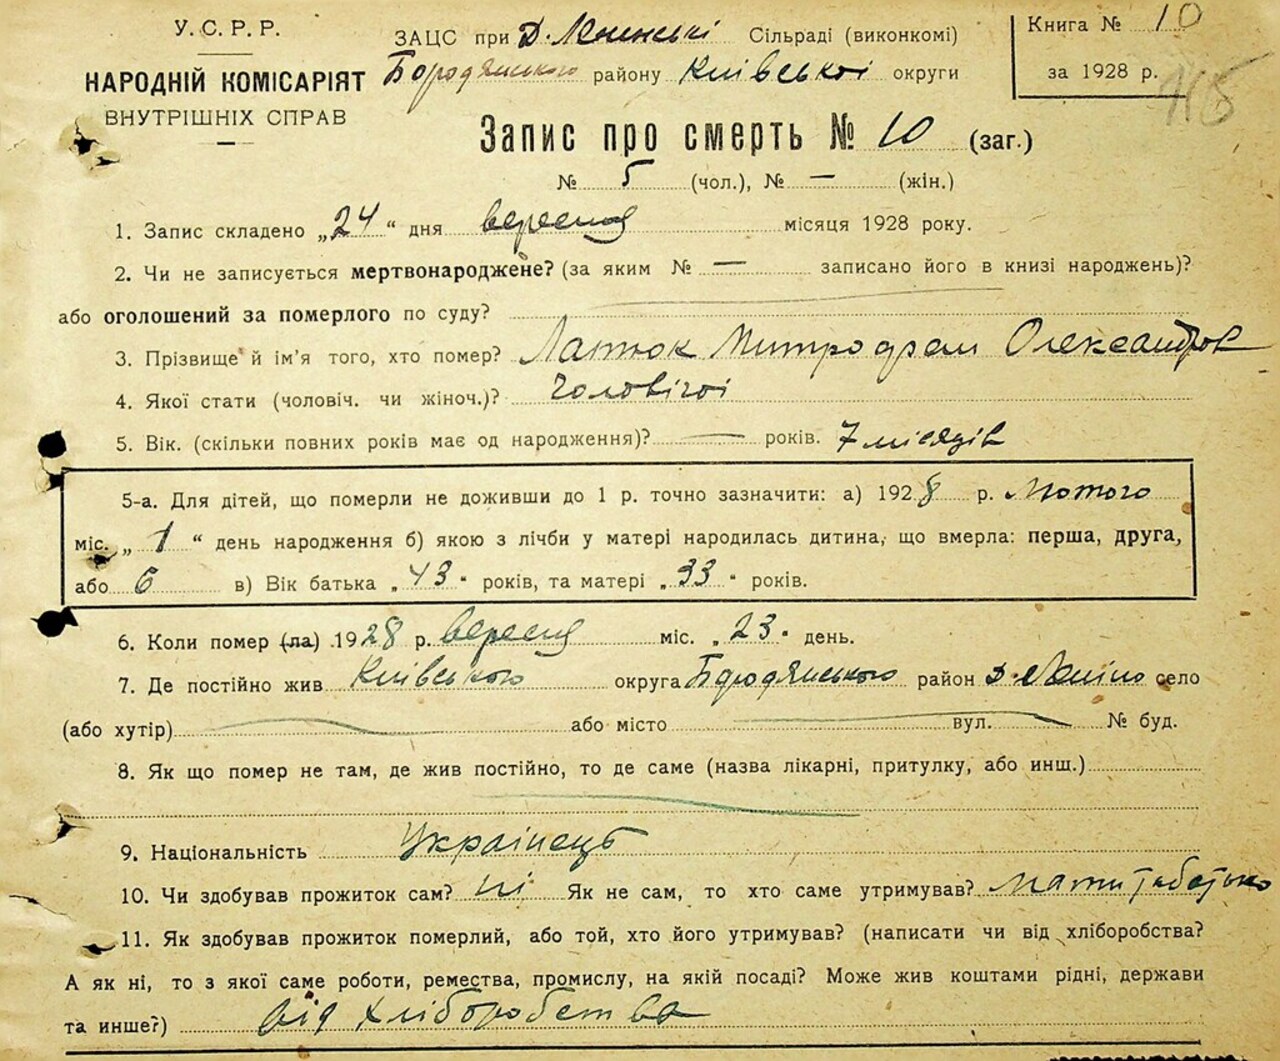 У.С.Р.Р.
НАРОДНІЙ КОМІСАРІЯТ
ВНУТРІШНІХ СПРАВ
ЗАЦС при Д. Сільраді (виконкомі)
Бородянського району Київської округи
Книга № 10
за 1928 р.
115
Запис про смерть № 10 (заг.)
№ 5 (чол.), № — (жін.)
1. Запис складено „24“ дня вересня місяця 1928 року.
2. Чи не записується мертвонароджене? (за яким № — записано його в книзі народжень)?
або оголошений за померлого по суду?
3. Прізвище й ім'я того, хто помер? Митрофан Олександров
4. Якої статі (чоловіч. чи жіноч.)? чоловічої
5. Вік. (скільки повних років має од народження)? — років. 7 місяців
5-а. Для дітей, що померли не доживши до 1 р. точно зазначити: а) 1928 р. Лютого
міс. „1“ день народження б) якою з лічби у матері народилась дитина, що вмерла: перша, друга,
або 6 в) Вік батька „43“ років, та матері „33“ років.
6. Коли помер (ла) 1928 р. вересня міс. „23“ день.
7. Де постійно жив Київського округа Бородянського район Д. село
(або хутір) або місто вул. № буд.
8. Як що помер не там, де жив постійно, то де саме (назва лікарні, притулку, або инш.)
9. Національність Українець
10. Чи здобував прожиток сам? ні Як не сам, то хто саме утримував? мати і батько
11. Як здобував прожиток померлий, або той, хто його утримував? (написати чи від хліборобства?
А як ні, то з якої саме роботи, ремества, промислу, на якій посаді? Може жив коштами рідні, держави
та инше?) від хліборобства